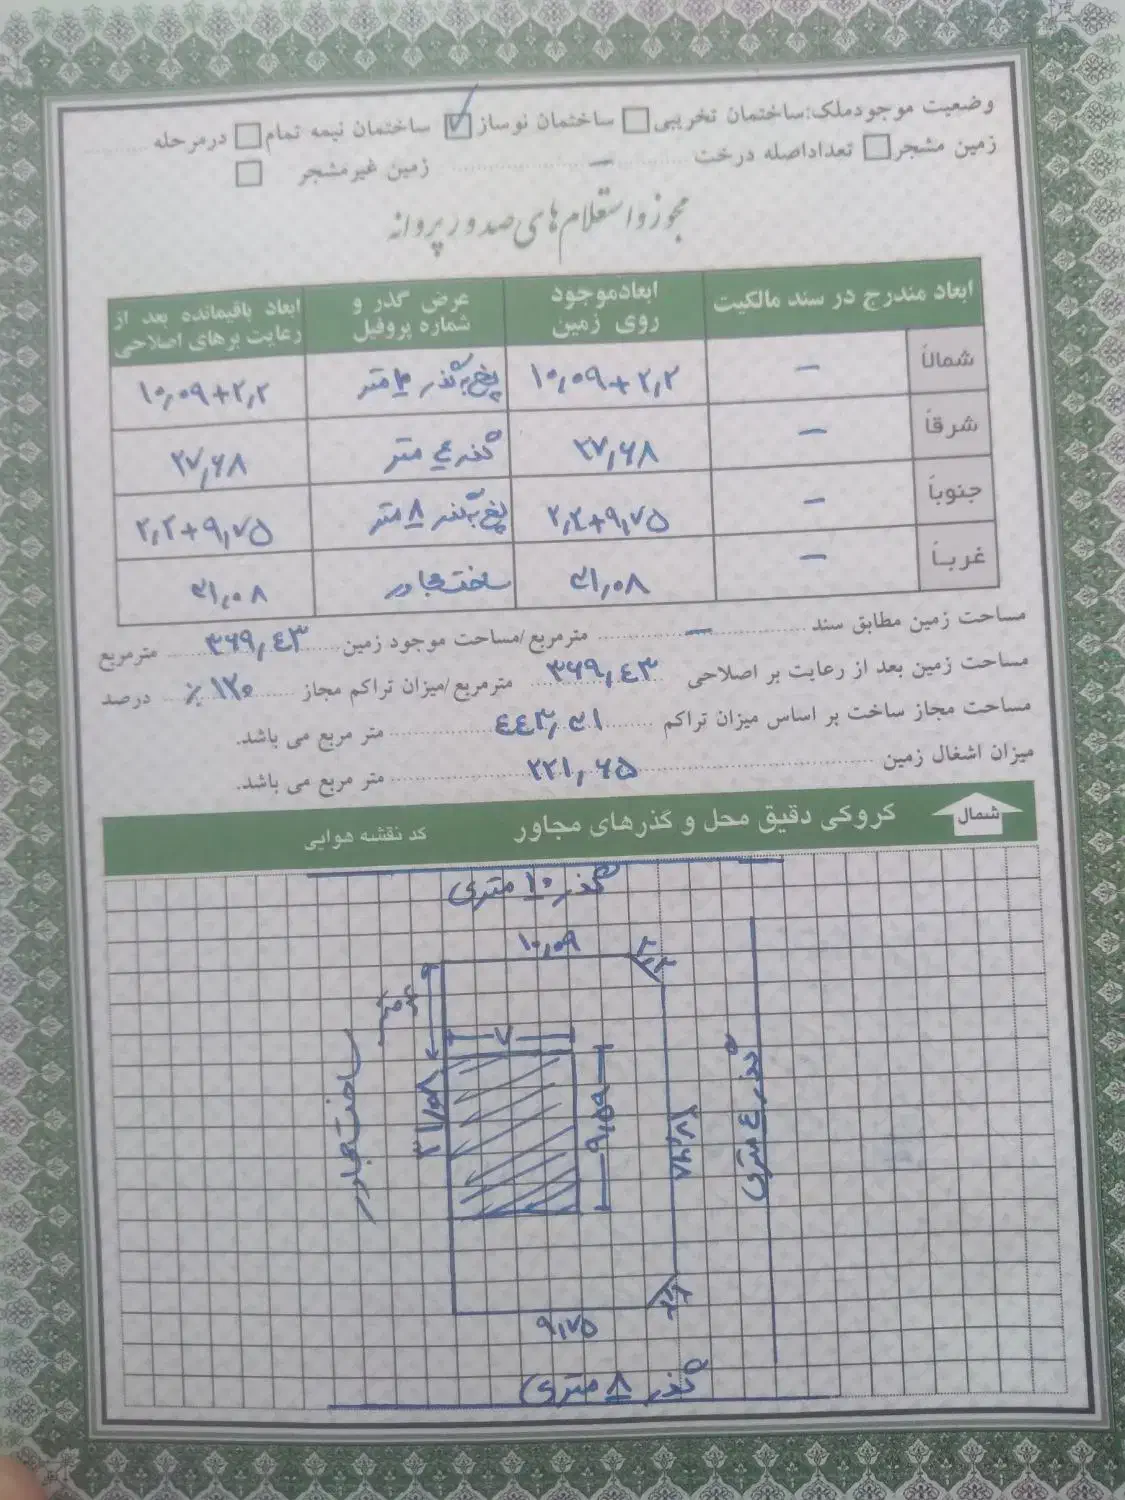 وضعیت موجودملک:ساختمان تخریبی ☐ ساختمان نوساز ☑ ساختمان نیمه تمام ☐ درمرحله ..........
زمین مشجر ☐ تعداداصله درخت ..... — ..... زمین غیرمشجر ☐
مجوز و استعلام های صدور پروانه
ابعاد مندرج در سند مالکیت | ابعادموجود روی زمین | عرض گذر و شماره پروفیل | ابعاد باقیمانده بعد از رعایت برهای اصلاحی
شمالاً | — | ۱۰,۰۹+۲,۲ | پخ به گذر ۱۰ متر | ۱۰,۰۹+۲,۲
شرقاً | — | ۲۷,۶۸ | گذر ٤ متر | ۲۷,۶۸
جنوباً | — | ۲,۲+۹,۷۵ | پخ به گذر ۸ متر | ۲,۲+۹,۷۵
غرباً | — | ۳۱,۰۸ | ساخت مجاور | ۳۱,۰۸
مساحت زمین مطابق سند ..... — ..... مترمربع/مساحت موجود زمین ..... ۳۶۹,٤۳ ..... مترمربع
مساحت زمین بعد از رعایت بر اصلاحی ۳۶۹,٤۳ ..... مترمربع/میزان تراکم مجاز ..... ۱۲۰ ٪ ..... درصد
مساحت مجاز ساخت بر اساس میزان تراکم ..... ٤٤۳,۳۱ ..... متر مربع می باشد.
میزان اشغال زمین ..... ۲۲۱,۶۵ ..... متر مربع می باشد.
شمال
کروکی دقیق محل و گذرهای مجاور
کد نقشه هوایی
گذر ۱۰ متری
۱۰,۰۹
۲,۲
۷
ساخت مجاور
۳۱,۰۸
۹,۵۹
گذر ٤ متری
۲,۲
۹,۷۵
گذر ۸ متری